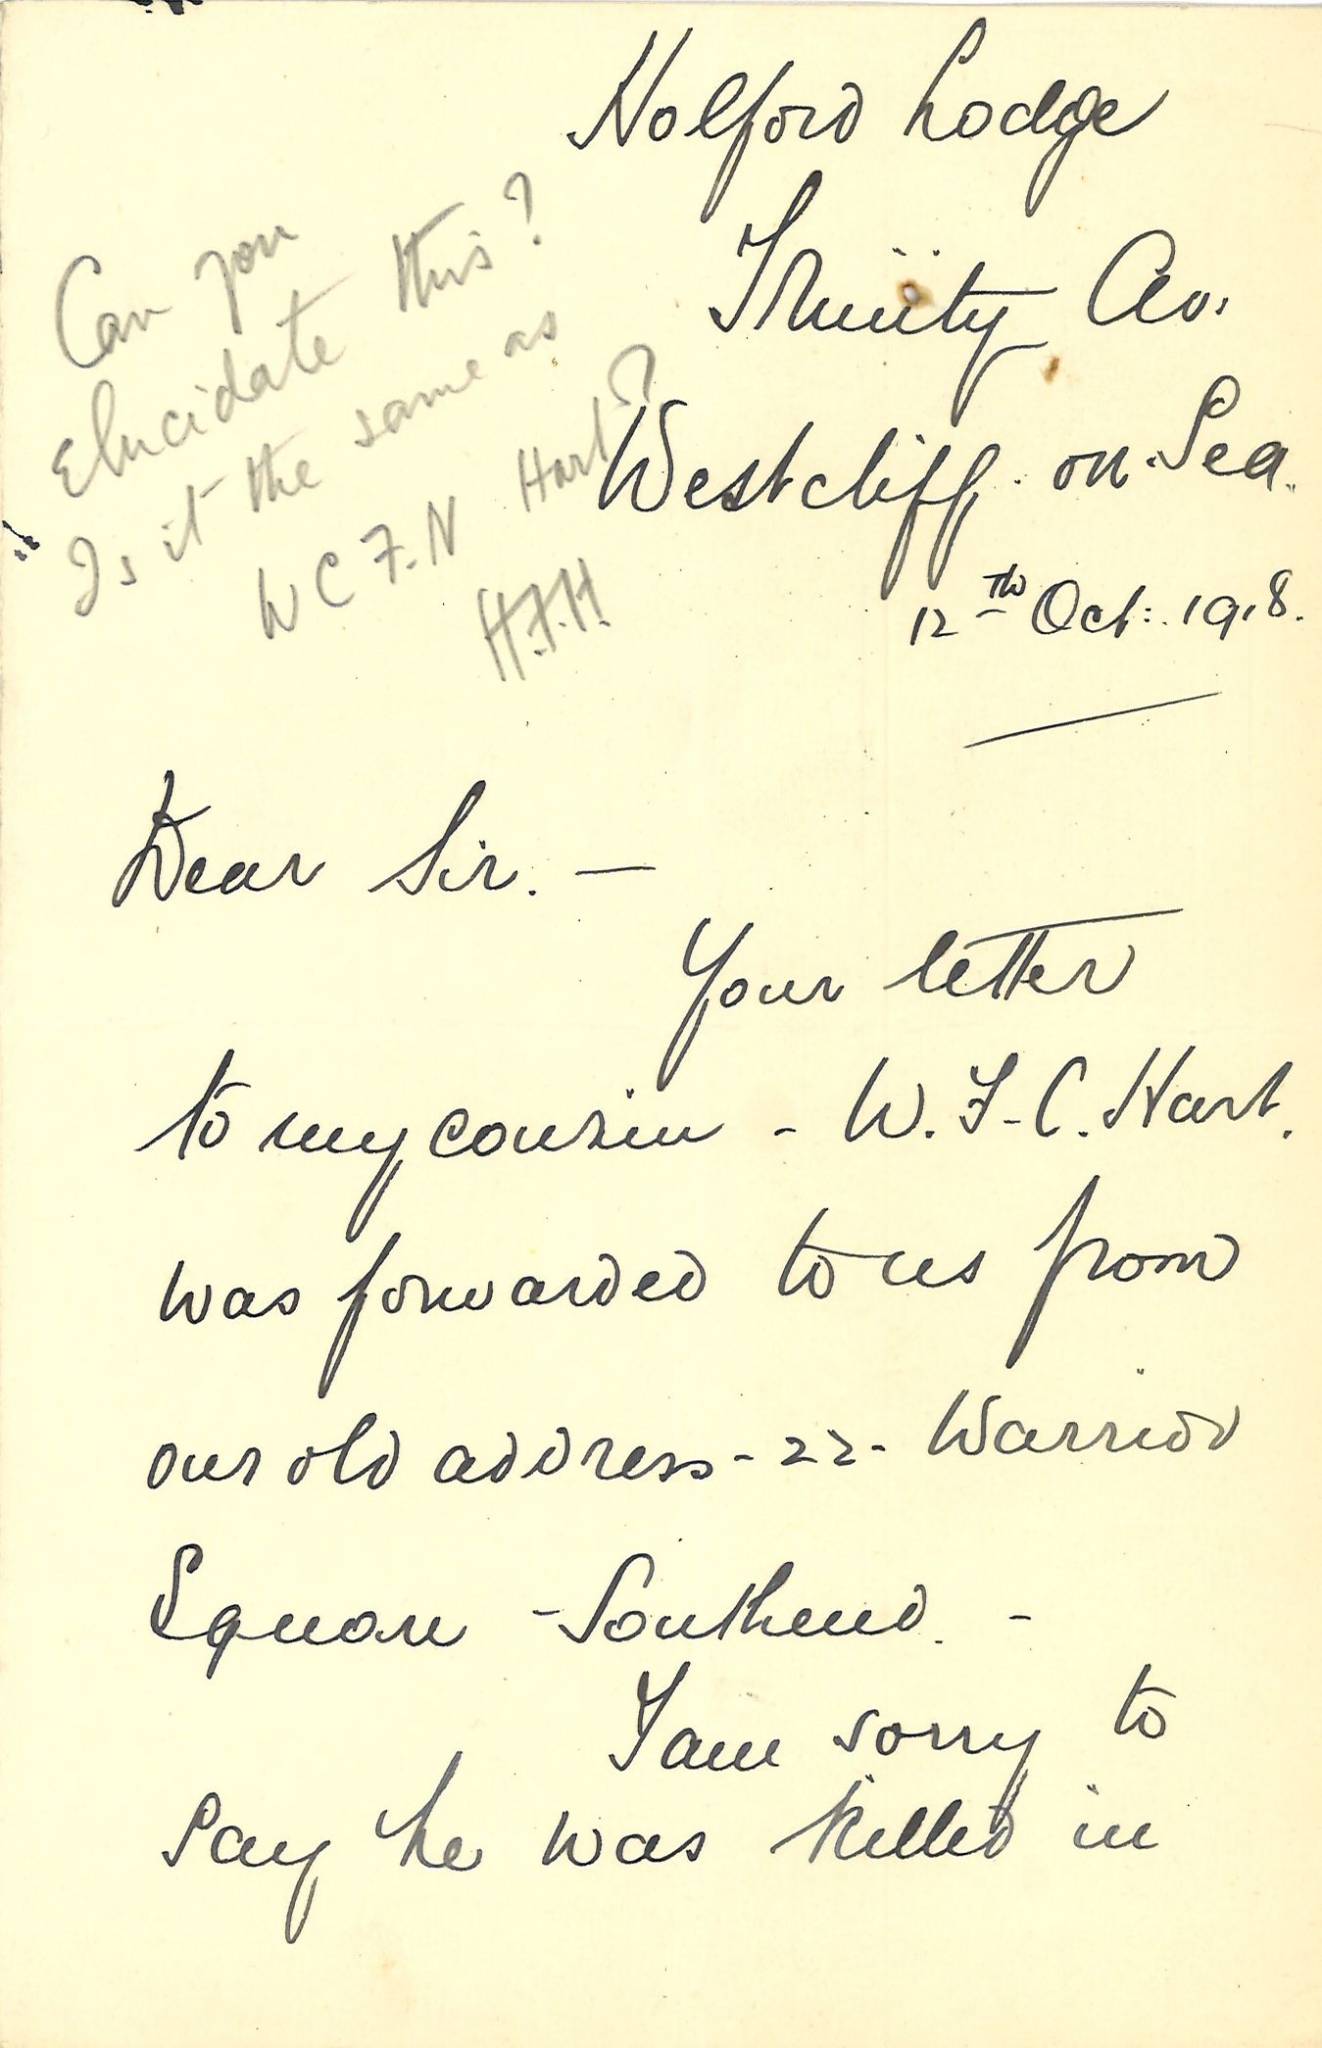 Holford Lodge
Trinity Av.
Westcliff-on-Sea.
12th Oct: 1918.
Can you
Elucidate this?
Is it the same as
W C F. N Hart?
H.F.H.
Dear Sir. —
Your letter
to my cousin - W. F. C. Hart.
was forwarded to us from
our old address - 22 - Warrior
Square - Southend. -
I am sorry to
say he was killed in